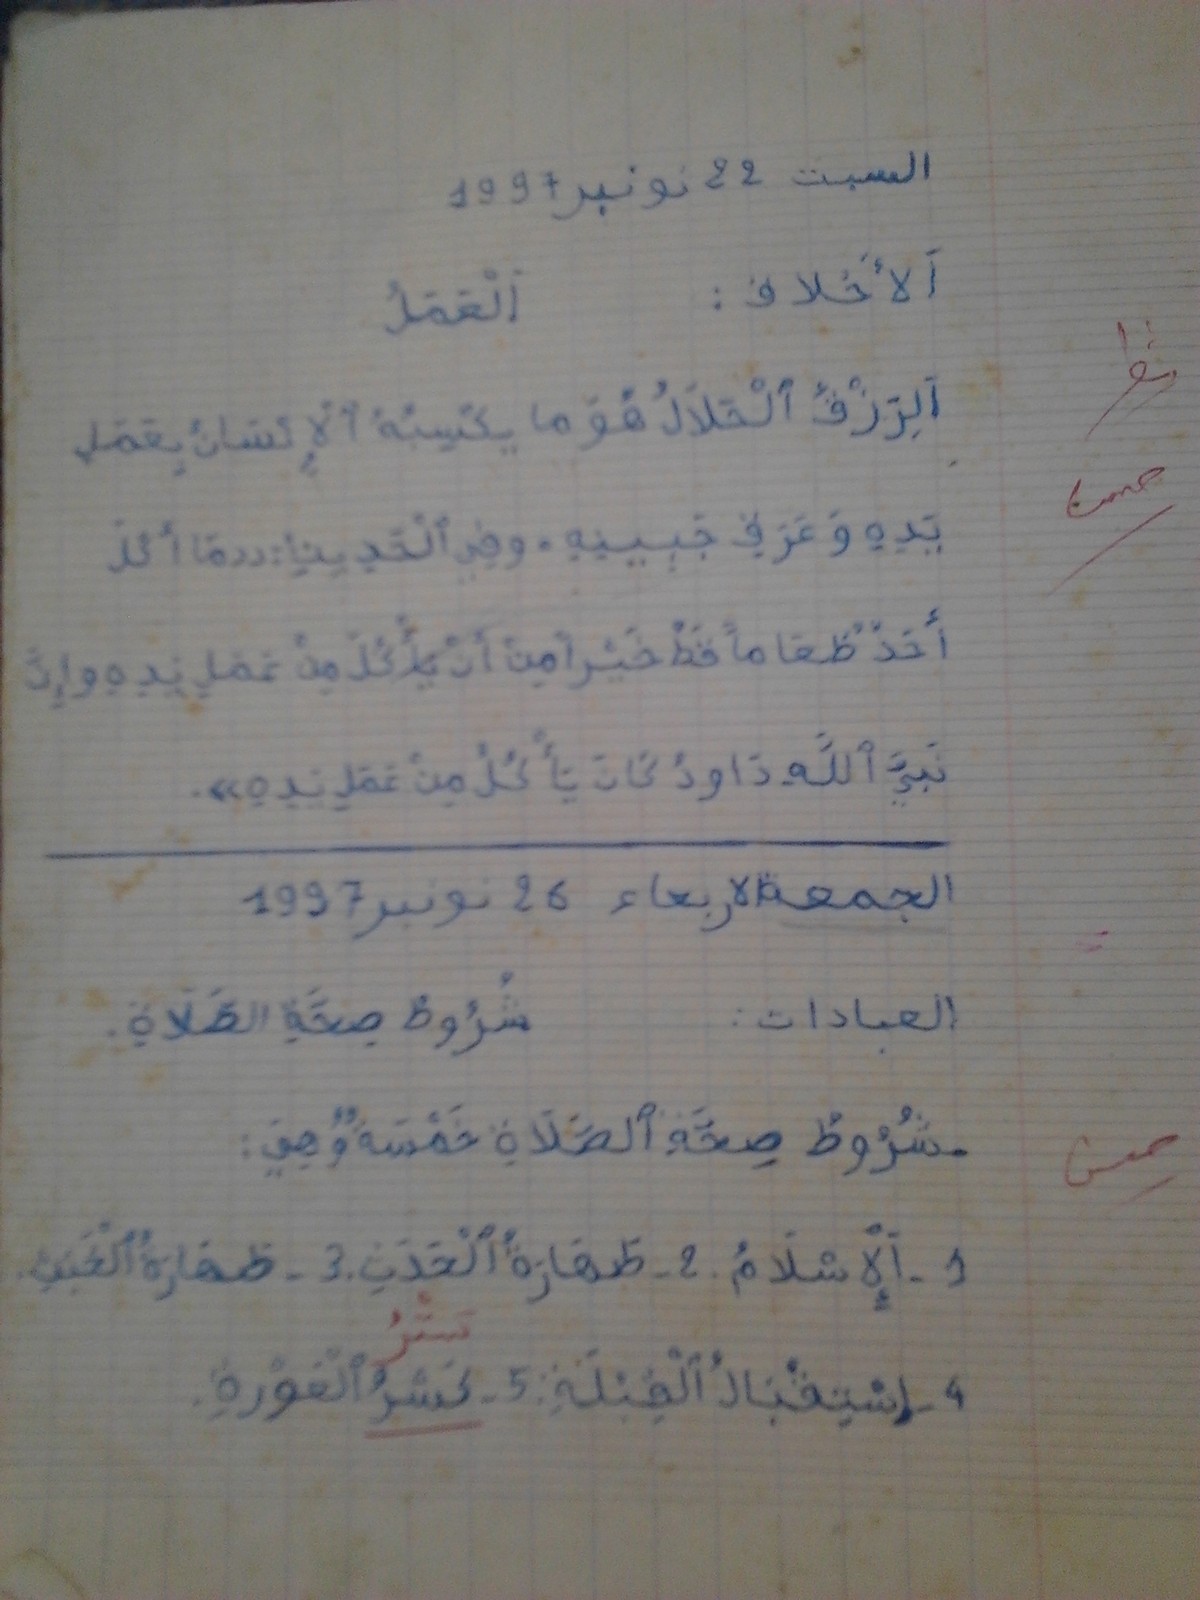 السبت 22 نونبر 1997
اَلأَخْلاق: اَلْعَمَلُ
نظر
اَلرِّزْقُ ٱلْحَلَالُ هُوَ ما يكتَسِبُهُ ٱلْإِنْسَانُ بِعَمَلِ
حسن
يَدِهِ وَعَرَقِ جَبِينِهِ. وفِي ٱلْحَدِيثِ: ««مَا أَكَلَ
أَحَدٌ طَعَاماً قَطُّ خَيْراً مِنْ أَنْ يَأْكُلَ مِنْ عَمَلِ يَدِهِ وإِنَّ
نَبِيَّ ٱللَّهِ دَاودُ كَانَ يَأْكُلُ مِنْ عَمَلِ يَدِهِ».
الجمعة الاربعاء 26 نونبر 1997
العبادات: شُرُوطُ صِحَّةِ الصَّلَاةِ.
ـشُرُوطُ صِحَّةِ ٱلصَّلَاةِ خَمْسَةٌ وَهِيَ:
حسن
1ـ اَلْإِسْلَامُ. 2ـ طَهَارَةُ ٱلْحَدَثِ. 3ـ طَهَارَةُ ٱلْخَبَثِ.
سَتْرُ
4ـ إِسْتِقْبَالُ ٱلْقِبْلَةِ. 5ـ كَسْرُ ٱلْعَوْرَةِ.